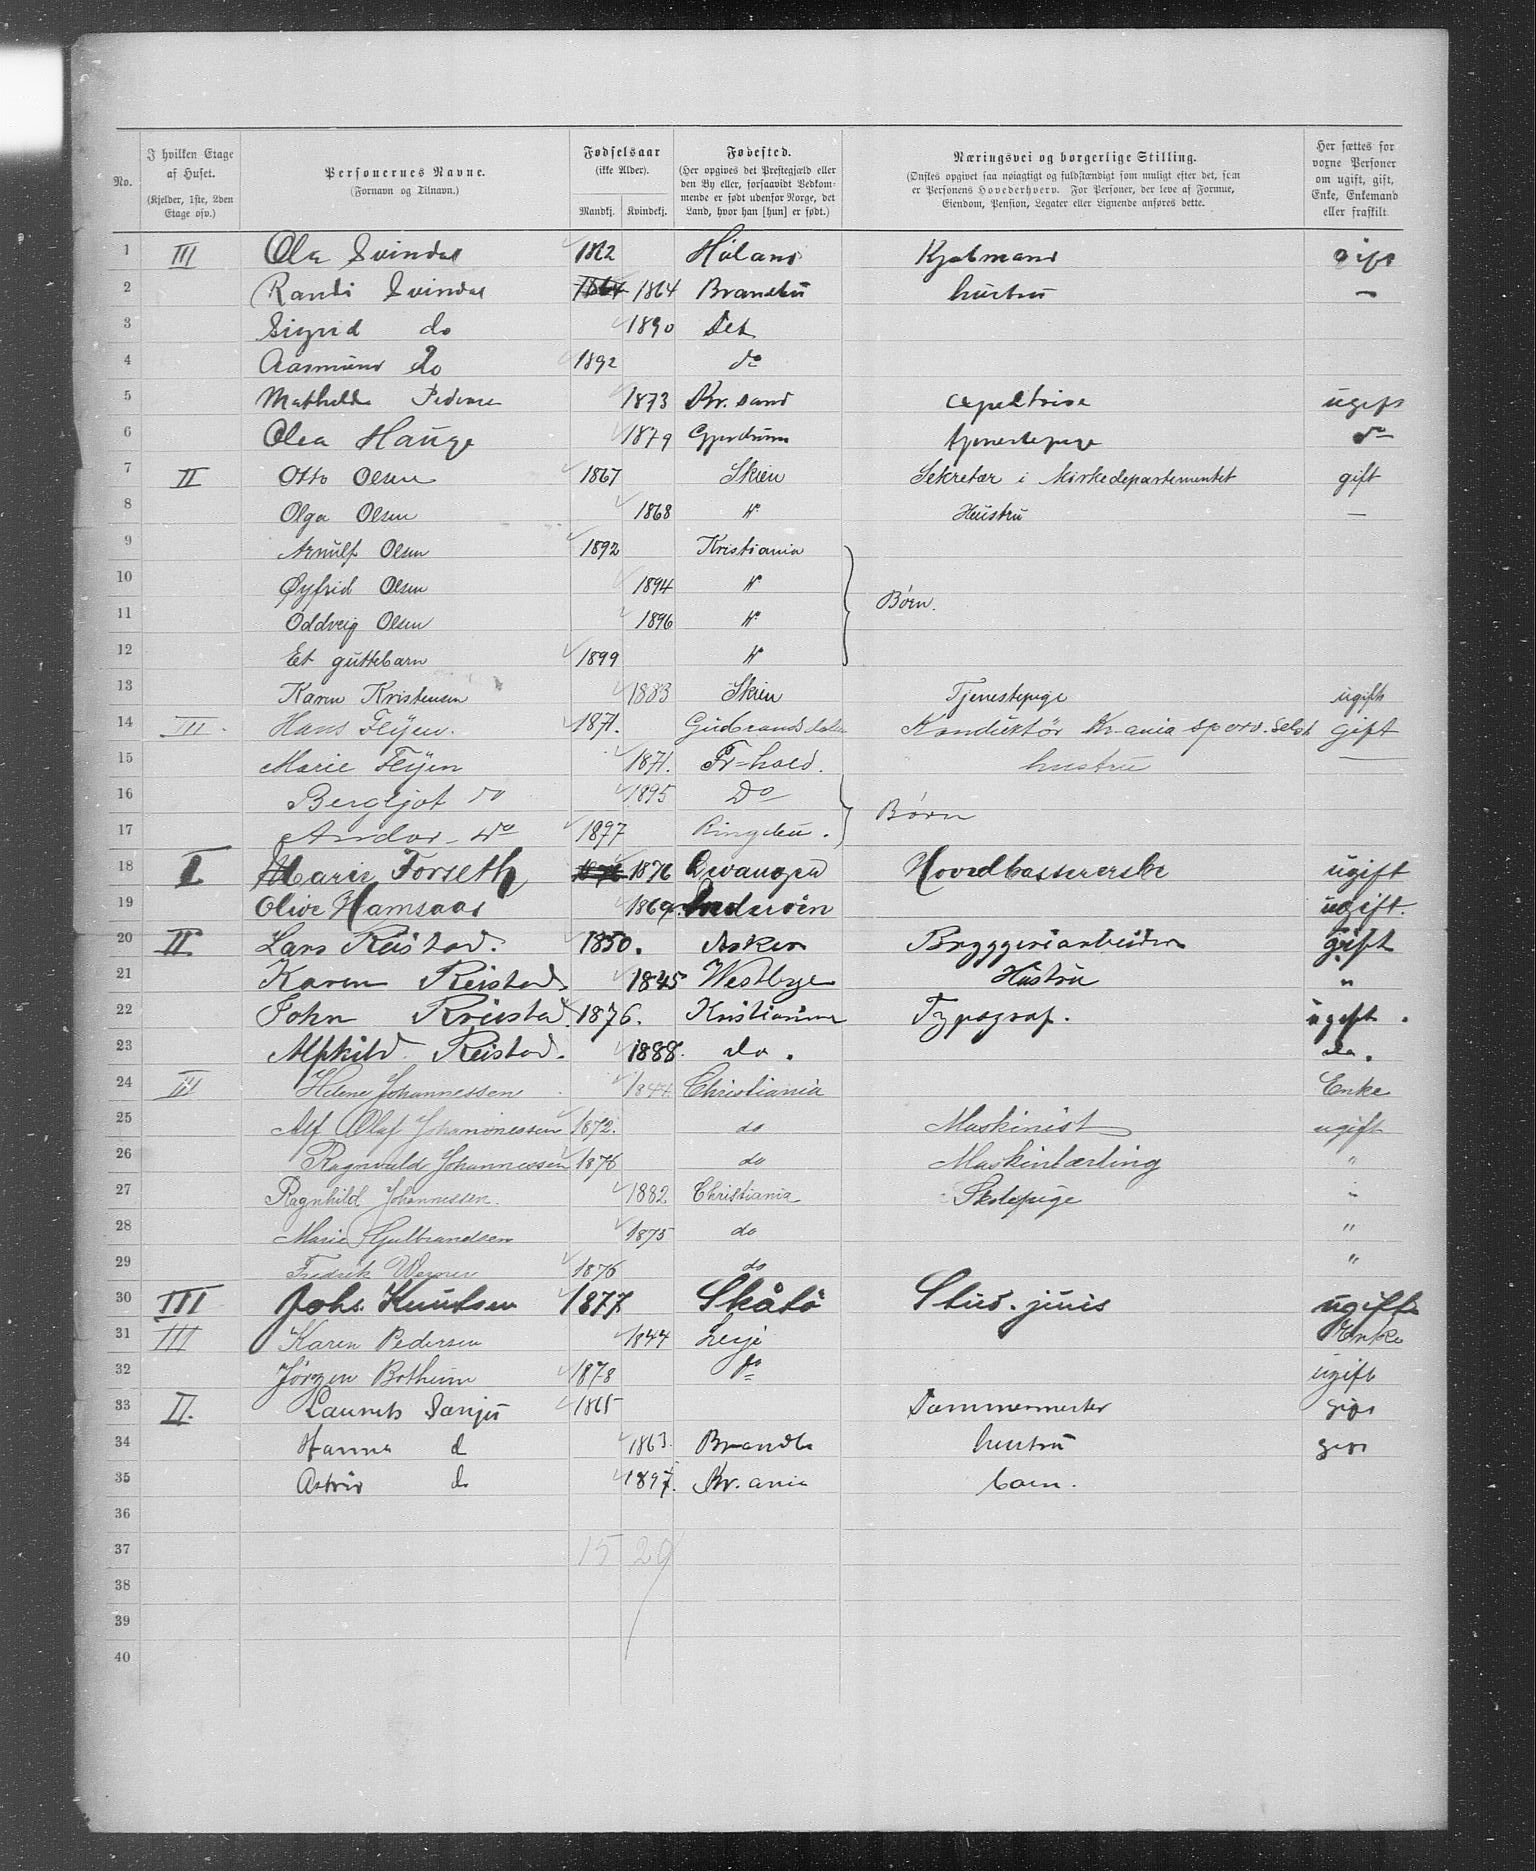 No.
I hvilken Etage af Huset. (Kjelder, 1ste, 2den Etage osv.)
Personernes Navne. (Fornavn og Tilnavn.)
Fødselsaar (ikke Alder). Mandkj. Kvindekj.
Fødested. (Her opgives det Prestegjæld eller den By eller, forsaavidt Vedkommende er født udenfor Norge, det Land, hvor han [hun] er født.)
Næringsvei og borgerlige Stilling. (Ønskes opgivet saa nøiagtigt og fuldstændigt som muligt efter det, som er Personens Hovederhverv. For Personer, der leve af Formue, Eiendom, Pension, Legater eller Lignende anføres dette.
Her sættes for voxne Personer om ugift, gift, Enke, Enkemand eller fraskilt.
1 III Ola Svindal 1862 Høland Kjøbmand gift
2 Randi Svindal 1864 1864 Brandbu hustru —
3 Sigrid do 1890 Det
4 Aasmund do 1892 do
5 Mathilde 1873 Kr.sand ugift
6 Olea Hauge 1879 Gjerdrum tjenestepige do
7 II Otto Olsen 1867 Skien Sekretær i Kirkedepartementet gift
8 Olga Olsen 1868 " Hustru —
9 Arnulf Olsen 1892 Kristiania
10 Øyfrid Olsen 1894 "
Børn.
11 Oddveig Olsen 1896 "
12 Et guttebarn 1899 "
13 Karen Kristensen 1883 Skien Tjenestepige ugift
14 III. Hans Fløjen. 1871. Gudbrandsdalen Konduktør Kr.ania sporv. Selsk gift
15 Marie Fløjen 1871. Fr-hald. hustru —
16 Bergljot do 1895 Do
Børn
17 Andor do 1897 Ringebu.
18 I Marie Forseth 1876 1876 ugift
19 Olive Hamsaas 1869 Inderøen ugift.
20 II Lars Reistad. 1850. Asker Bryggeriarbeider gift
21 Karen Reistad. 1845 Westbye Hustru "
22 John Reistad. 1876. Kristiania Typograf. ugift.
23 Alfhild Reistad. 1888. do. do.
24 III Helene Johannessen 1844 Christiania Enke
25 Alf Olaf Johannessen 1872. do Maskinist ugift
26 Ragnvald Johannessen 1878 do Maskinlærling "
27 Ragnhild Johannessen. 1882 Christiania Skolepige "
28 Marie Gulbrandsen 1875 do "
29 Fredrik Werner 1876 do "
30 III Johs. Knutsen 1877 Skåtø Stud. juris ugift
31 III Karen Pedersen 1844 Lesje Enke
32 Jørgen Botheim 1878 do ugift
33 II. Laurits 1865 Tømmermester gift
34 Hanna d 1863. Brandbu hustru gift
35 Astrid do 1897. Kr.ania barn.
36
37 15 20
38
39
40